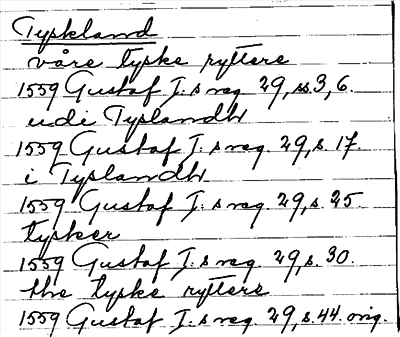 Tyskland
våre tyske ryttere
1559 Gustaf I:s reg. 29, ss. 3, 6.
udi Tyslandh
1559 Gustaf I:s reg. 29, s. 17.
i Tyslandh
1559 Gustaf I:s reg. 29, s. 25.
tysker
1559 Gustaf I:s reg. 29, s. 30.
the tyske ryttere
1559 Gustaf I:s reg. 29, s. 44. orig.